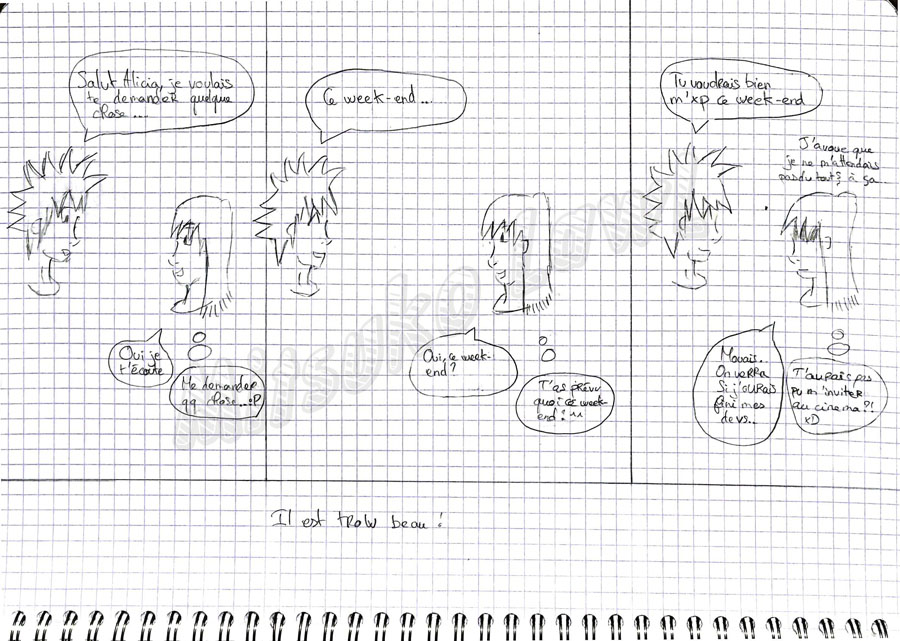 Salut Alicia, je voulais
te demander quelque
chose...
Oui je
t'écoute
Me demander
qq chose...:P
Ce week-end...
Oui, ce week-
end?
T'as prévu
quoi ce week-
end? ^^
Tu voudrais bien
m'xp ce week-end
J'avoue que
je ne m'attendais
pas du tout à ça
Mouais.
On verra
Si j'aurais
fini mes
devs..
T'aurais pas
pu m'inviter
au cinema?!
xD
Il est trow beau!